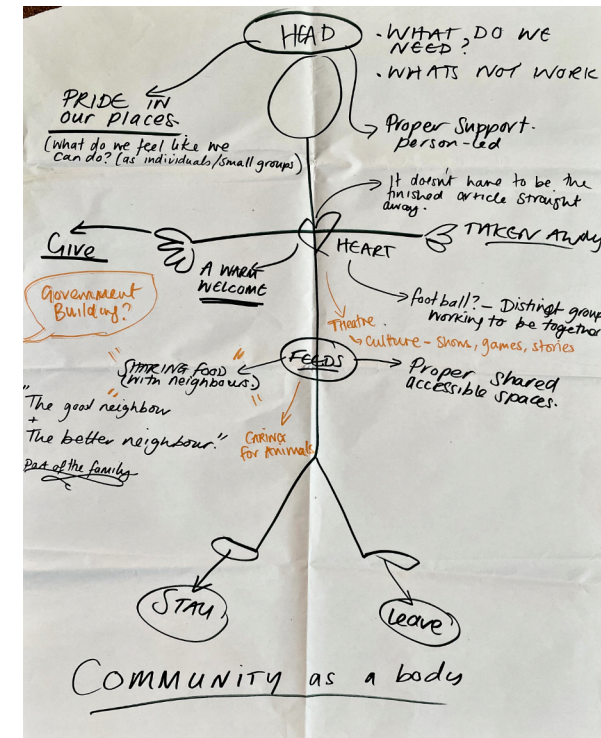 HEAD
• WHAT DO WE
NEED?
• WHATS NOT WORK
PRIDE IN
our places.
(What do we feel like we
can do? (as individuals/small groups)
Proper Support.
person-led
It doesn't have to be the
finished article straight
away.
Give
TAKEN AWAY
HEART
A WARM
WELCOME
Government
Building?
football? – Distinct group
working to be together
Theatre.
Culture – Shows, games, stories
FEEDS
"SHARING FOOD"
(with neighbours.)
Proper shared
accessible spaces.
"The good neighbour
+
The better neighbour."
Part of the family
CARING
for Animals
STAY
Leave
COMMUNITY as a body